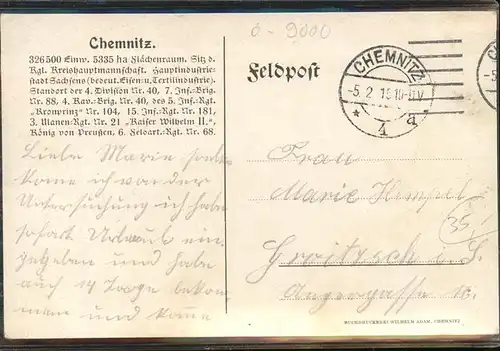 ö-9000
Chemnitz.
326500 Einw. 5335 ha Flächenraum. Sitz d.
Kgl. Kreishauptmannschaft. Hauptindustrie-
stadt Sachsens (bedeut. Eisen- u. Textilindustrie).
Standort der 4. Division Nr. 40, 7. Inf.-Brig.
Nr. 88, 4. Kav.-Brig. Nr. 40, des 5. Inf.-Rgt.
"Kronprinz" Nr. 104, 15. Inf.-Rgt. Nr. 181,
3. Ulanen-Rgt. Nr. 21 „Kaiser Wilhelm II.“,
König von Preußen, 6. Feldart.-Rgt. Nr. 68.
Feldpost
CHEMNITZ
-5. 2. 10-11V.
* 4 a
-5
Liebe Marie soeben
kome ich von der
Untersuchung ich habe
sofort Urlaub ein-
gegeben und habe
auch 14 Tage bekom-
men und kome
Frau
Marie Hempel
Groitzsch i. S.
Angergasse 10.
35
BUCHDRUCKEREI WILHELM ADAM, CHEMNITZ